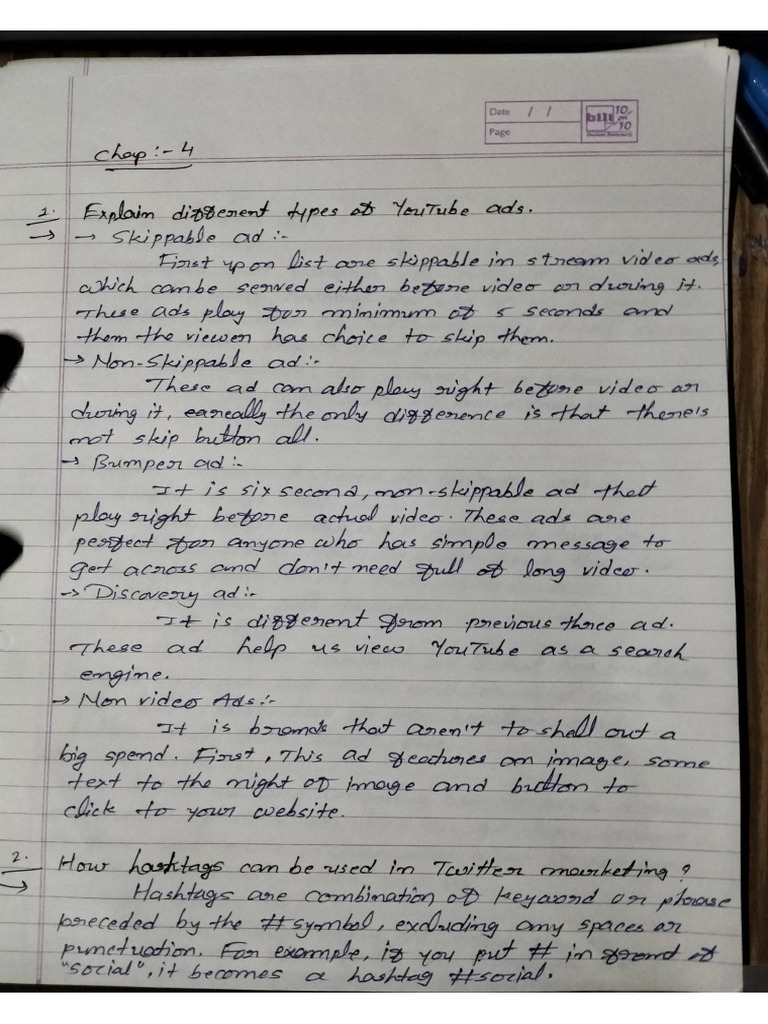 Date / /
Page
bilt 10 on 10
Chap :- 4
1. Explain different types of YouTube ads.
→ → Skippable ad :-
First up on list are skippable in stream video ads,
which can be served either before video or during it.
These ads play for minimum of 5 seconds and
them the viewer has choice to skip them.
→ Non-Skippable ad :-
These ad can also play right before video or
during it, the only difference is that there's
not skip button all.
→ Bumper ad :-
It is six second, non-skippable ad that
play right before actual video. These ads are
perfect for anyone who has simple message to
get across and don't need full of long video.
→ Discovery ad :-
It is different from previous three ad.
These ad help us view YouTube as a search
engine.
→ Non video Ads :-
It is brands that aren't to shell out a
big spend. First, This ad features an image, some
text to the right of image and button to
click to your website.
2. How hashtags can be used in Twitter marketing?
→ Hashtags are combination of keyword or phrase
preceded by the # symbol, excluding any spaces or
punctuation. For example, if you put # in front of
"social", it becomes a hashtag #social.